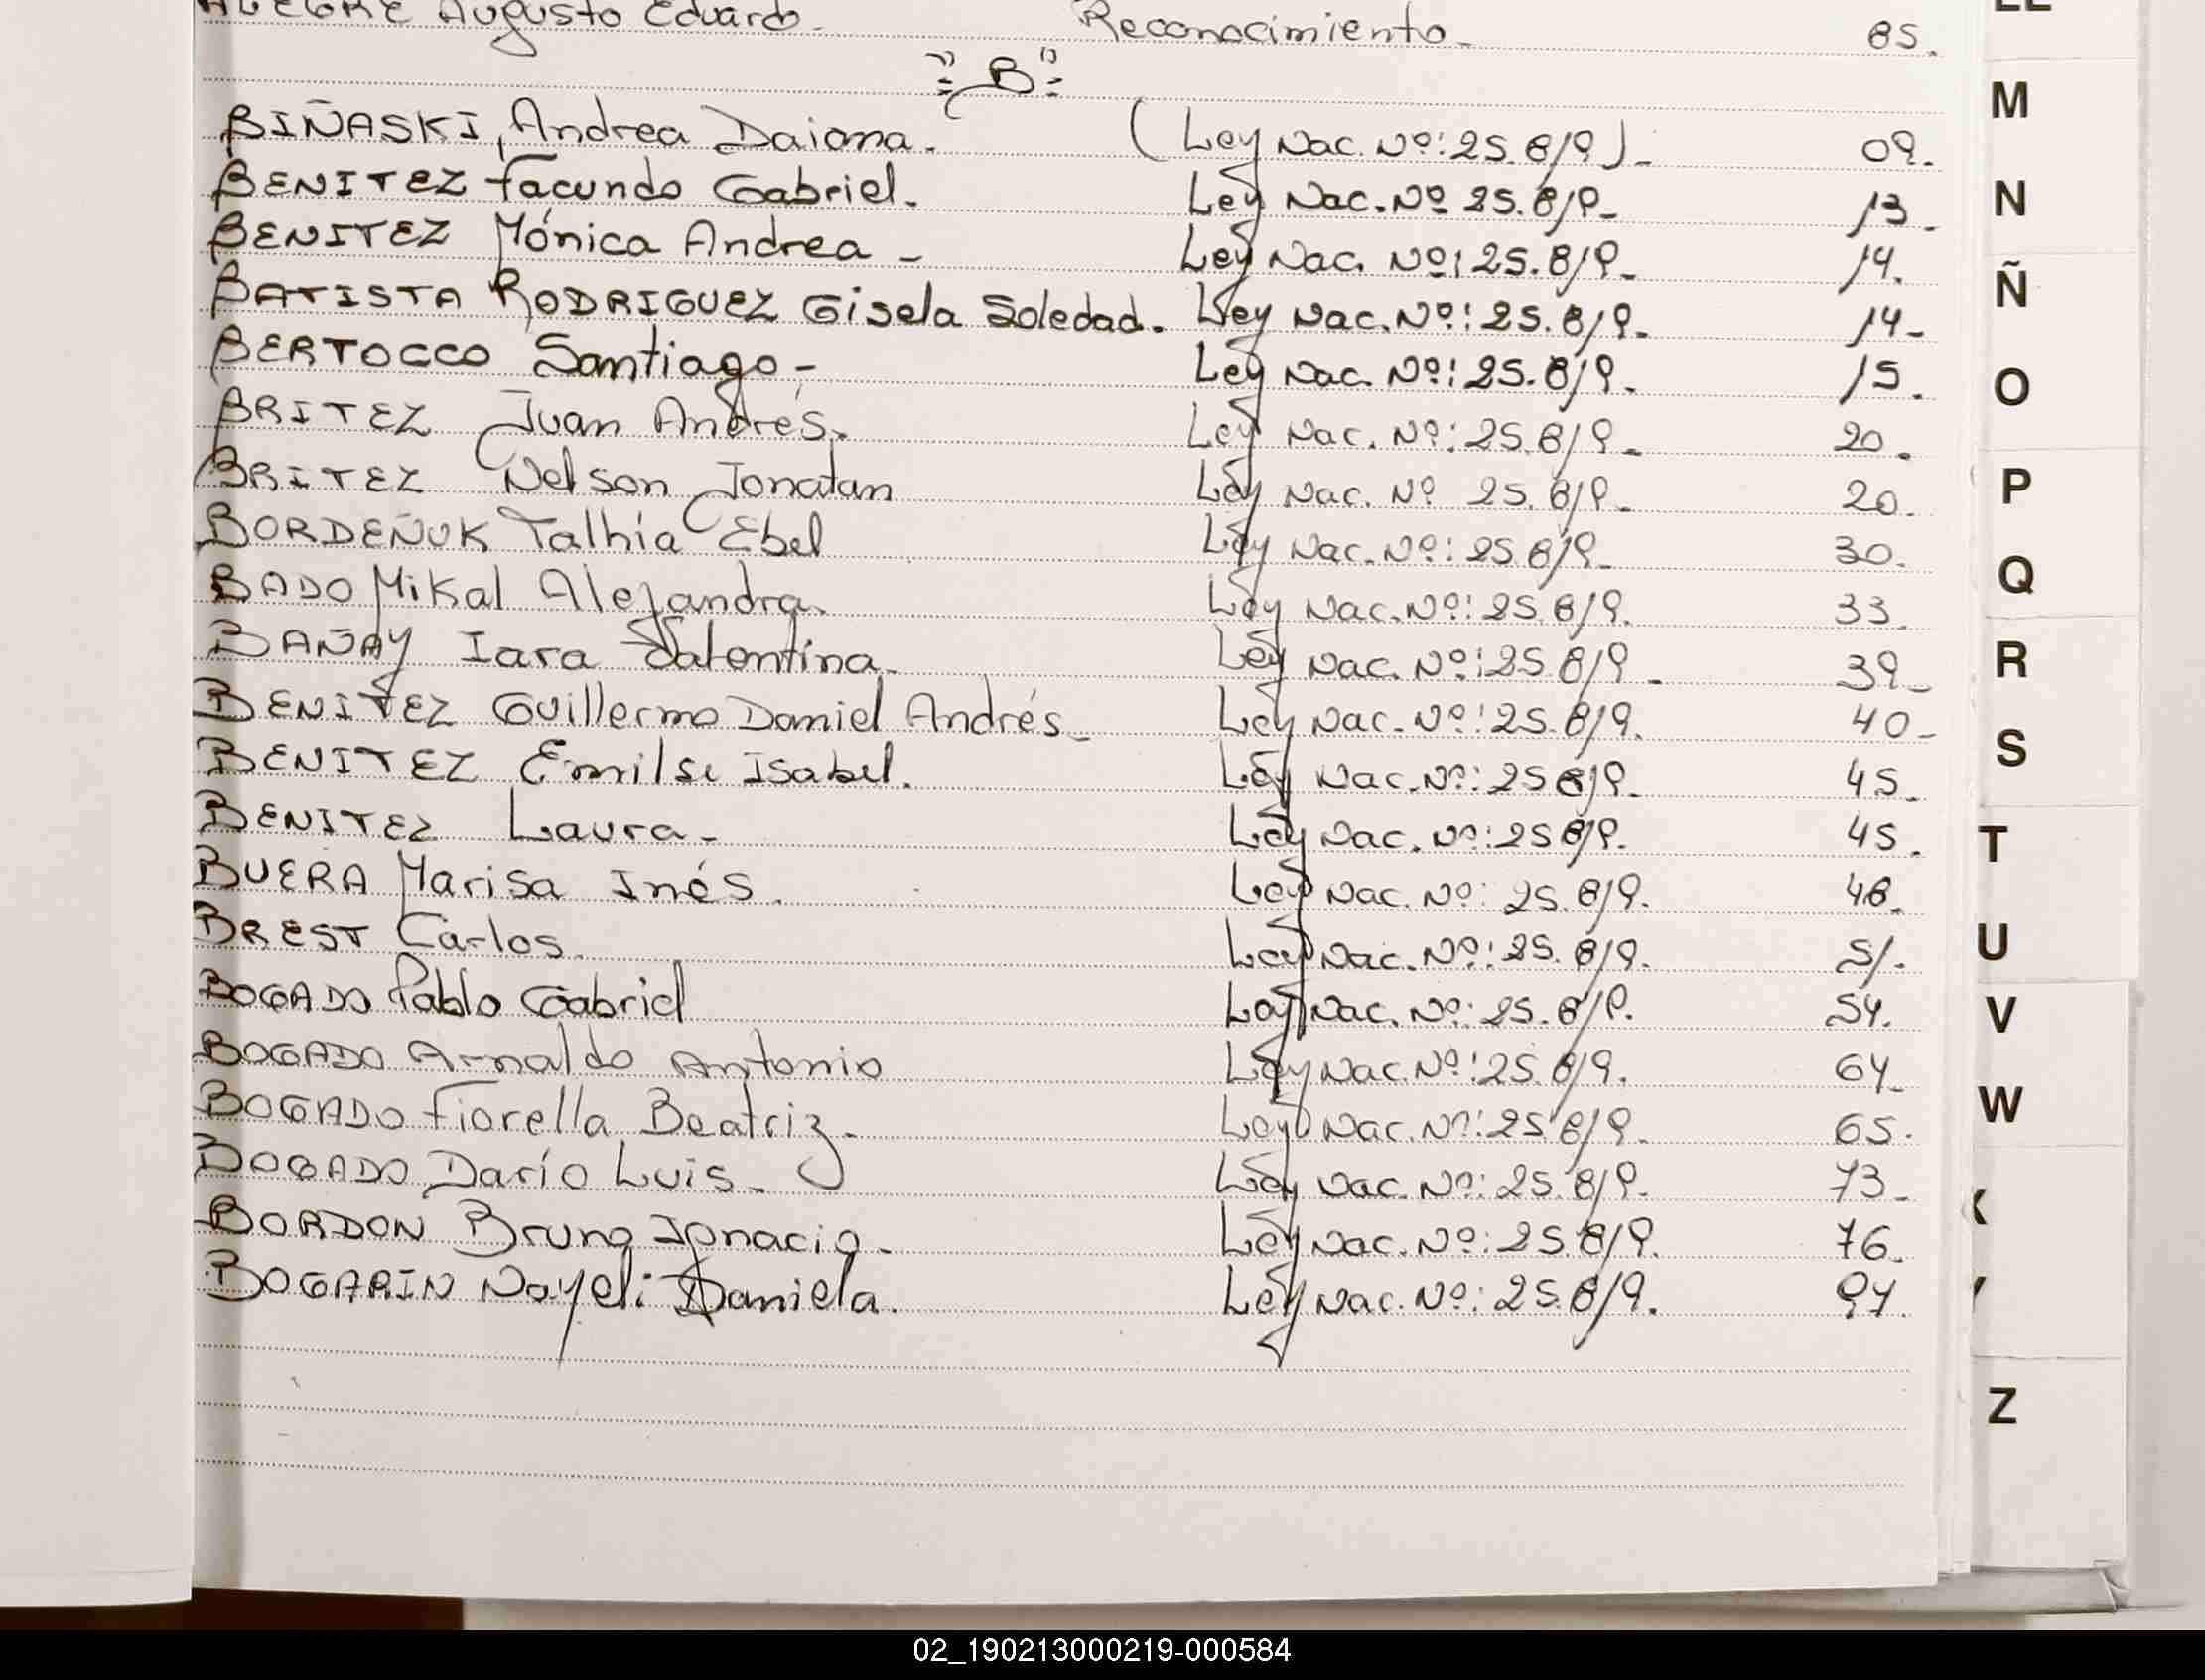 ALEGRE Augusto Eduardo.- Reconocimiento.- 85.
"B"
BIÑASKI, Andrea Daiana. (Ley Nac. Nº: 25.819).- 09.
BENITEZ Facundo Gabriel. Ley Nac. Nº 25.819.- 13.-
BENITEZ Mónica Andrea - Ley Nac. Nº: 25.819.- 14.
BATISTA RODRIGUEZ Gisela Soledad. Ley Nac. Nº: 25.819.- 14-
BERTOCCO Santiago.- Ley Nac. Nº: 25.819. 15.
BRITEZ Juan Andrés. Ley Nac. Nº: 25.819.- 20.
BRITEZ Nelson Jonatan Ley Nac. Nº 25.819.- 20.
BORDEÑUK Talhía Ebel Ley Nac. Nº: 25.819.- 30.
BADO Mikal Alejandra. Ley Nac. Nº: 25.819. 33.
BAÑAY Iara Valentina.- Ley Nac. Nº: 25.819.- 39.-
BENITEZ Guillermo Daniel Andrés.- Ley Nac. Nº: 25.819. 40-
BENITEZ Emilse Isabel. Ley Nac. Nº: 25819.- 45.-
BENITEZ Laura.- Ley Nac. Nº: 25819. 45.
BUERA Marisa Inés. Ley Nac. Nº: 25.819. 48.
BREST Carlos. Ley Nac. Nº: 25.819. 51.
BOGADO Pablo Gabriel Ley Nac. Nº: 25.819. 54.
BOGADO Arnaldo Antonio Ley Nac. Nº: 25.819. 64.-
BOGADO Fiorella Beatriz.- Ley Nac. Nº: 25819.- 65.
BOGADO Darío Luis.- Ley Nac. Nº: 25.819.- 73.-
BORDON Bruno Ignacio.- Ley Nac. Nº: 25.819. 76.-
BOGARIN Nayeli Daniela. Ley Nac. Nº: 25.819. 94.
LL
M
N
Ñ
O
P
Q
R
S
T
U
V
W
X
Y
Z
02_190213000219-000584